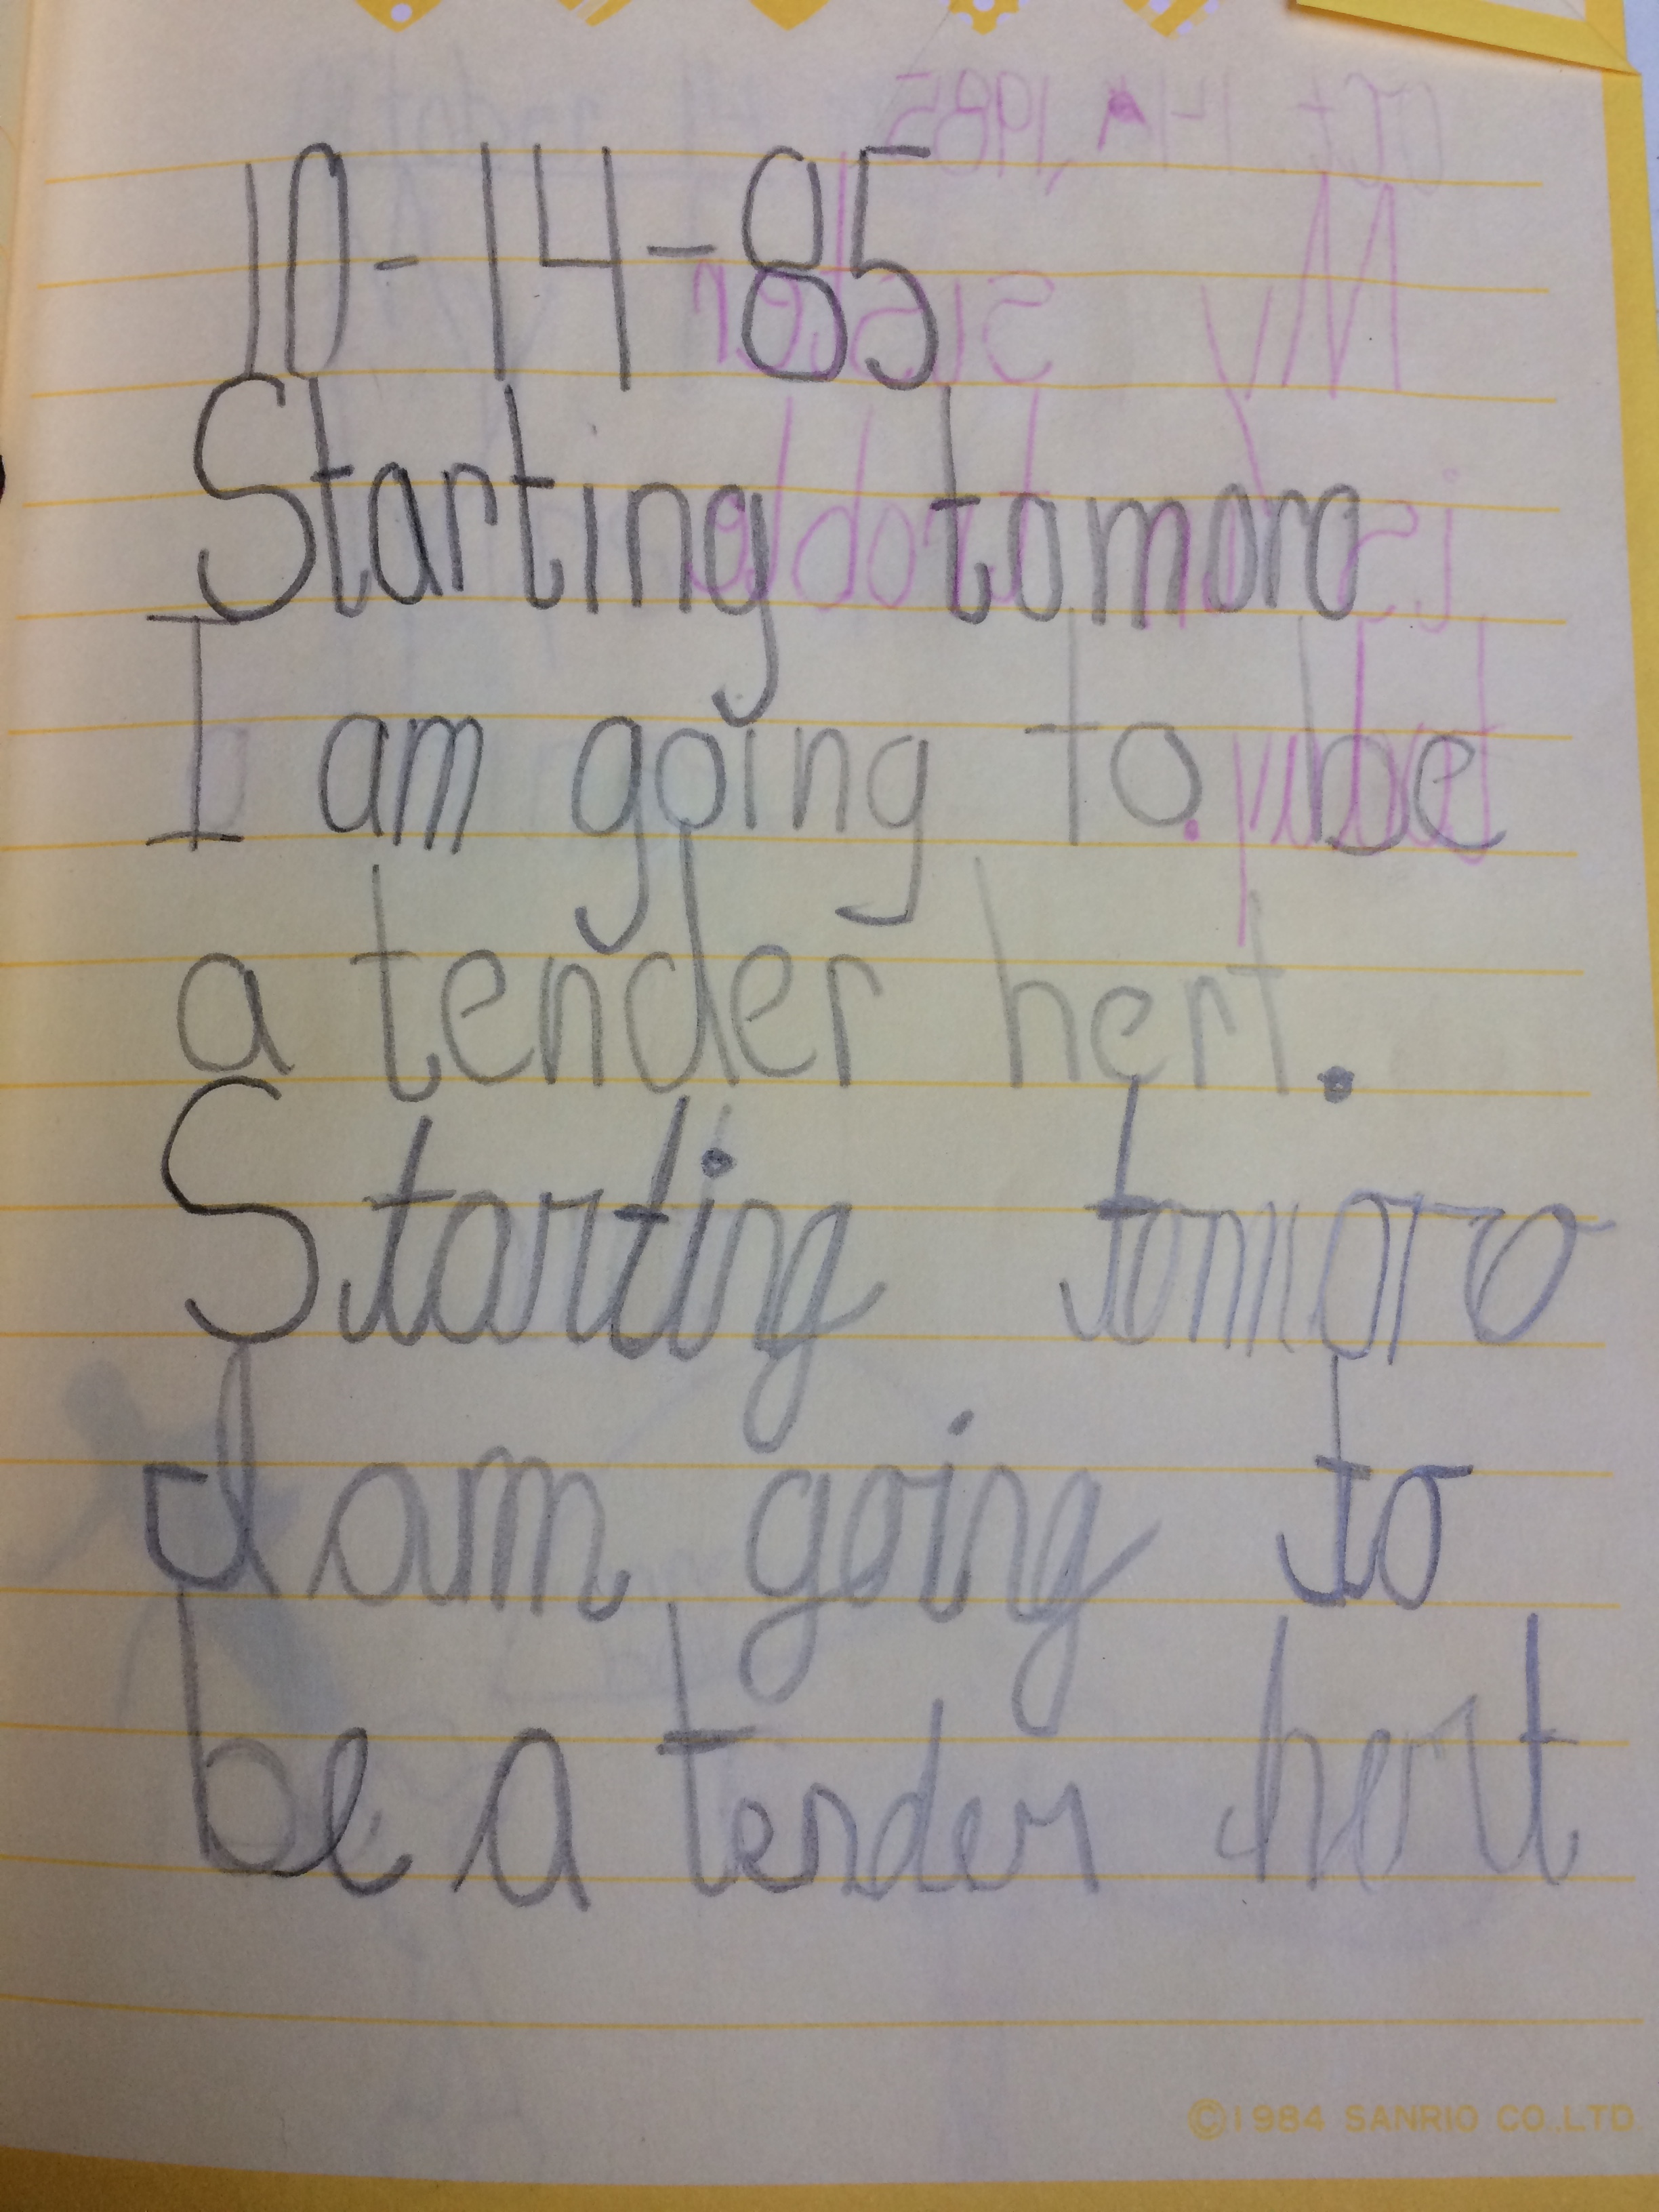 10-14-85
Starting tomoro
I am going to be
a tender hert.
Starting tomoro
I am going to
be a tender hert
©1984 SANRIO CO.,LTD.